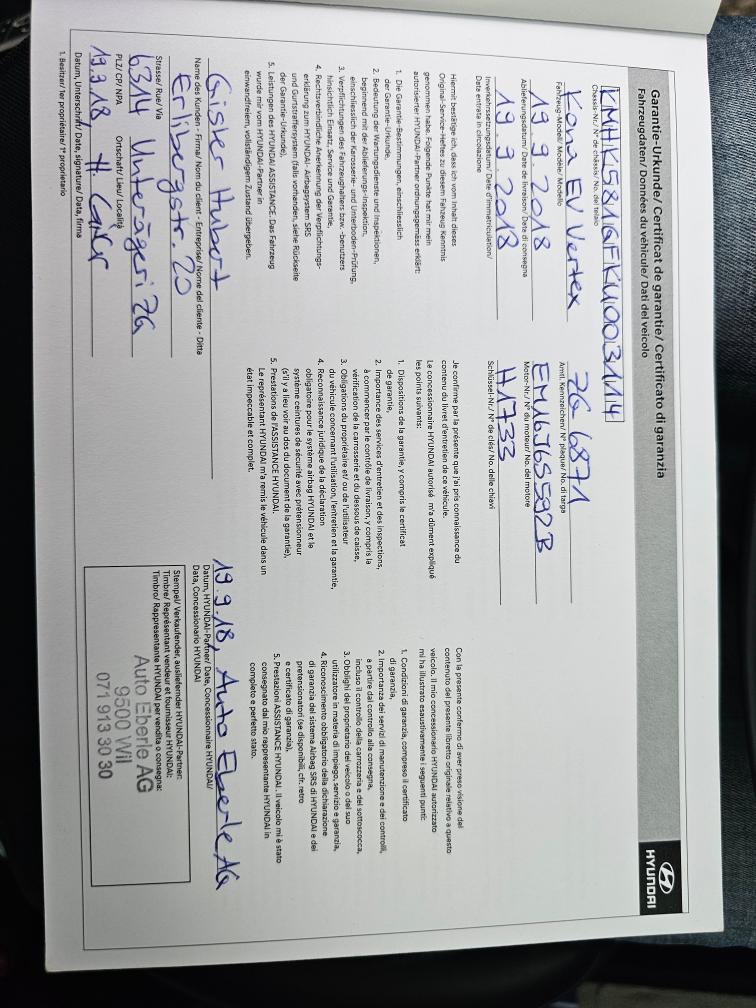 Garantie-Urkunde/ Certificat de garantie/ Certificato di garanzia
Fahrzeugdaten/ Données du véhicule/ Dati del veicolo
HYUNDAI
KMHK581GFKU003114
Chassis-Nr./ N° de châssis/ No. del telaio
Kona EV Vertex
ZG 6871
Fahrzeug-Modell/ Modèle/ Modello
Amtl. Kennzeichen/ N° plaque/ No. di targa
19.9.2018
EM16J6S592B
Ablieferungsdatum/ Date de livraison/ Data di consegna
Motor-Nr./ N° du moteur/ No. del motore
19.9.2018
H1733
Inverkehrssetzungsdatum/ Date d'immatriculation/
Data entrata in circolazione
Schlüssel-Nr./ N° de clés/ No. delle chiavi
Hiermit bestätige ich, dass ich vom Inhalt dieses
Original-Service-Heftes zu diesem Fahrzeug Kenntnis
genommen habe. Folgende Punkte hat mir mein
autorisierter HYUNDAI-Partner ordnungsgemäss erklärt:
1. Die Garantie-Bestimmungen, einschliesslich
der Garantie-Urkunde,
2. Bedeutung der Wartungsdienste und Inspektionen,
beginnend mit der Ablieferungs-Inspektion,
einschliesslich der Karosserie- und Unterboden-Prüfung,
3. Verpflichtungen des Fahrzeughalters bzw. -benutzers
hinsichtlich Einsatz, Service und Garantie,
4. Rechtsverbindliche Anerkennung der Verpflichtungs-
erklärung zum HYUNDAI- Airbagsystem- SRS
und Gurtstraffersystem (falls vorhanden, siehe Rückseite
der Garantie-Urkunde),
5. Leistungen des HYUNDAI ASSISTANCE. Das Fahrzeug
wurde mir vom HYUNDAI-Partner in
einwandfreiem, vollständigem Zustand übergeben.
Je confirme par la présente que j'ai pris connaissance du
contenu du livret d'entretien de ce véhicule.
Le concessionnaire HYUNDAI autorisé m'a dûment expliqué
les points suivants:
1. Dispositions de la garantie, y compris le certificat
de garantie,
2. Importance des services d'entretien et des inspections,
à commencer par le contrôle de livraison, y compris la
vérification de la carrosserie et du dessous de caisse,
3. Obligations du propriétaire et/ ou de l'utilisateur
du véhicule concernant l'utilisation, l'entretien et la garantie,
4. Reconnaissance juridique de la déclaration
obligatoire pour le système airbag HYUNDAI et le
système ceintures de sécurité avec prétensionneur
(s'il y a lieu voir au dos du document de la garantie),
5. Prestations de l'ASSISTANCE HYUNDAI.
Le représentant HYUNDAI m'a remis le véhicule dans un
état impeccable et complet.
Con la presente confermo di aver preso visione del
contenuto del presente libretto originale relativo a questo
veicolo. Il mio concessionario HYUNDAI autorizzato
mi ha illustrato esaustivamente i seguenti punti:
1. Condizioni di garanzia, compreso il certificato
di garanzia,
2. Importanza dei servizi di manutenzione e dei controlli,
a partire dal controllo alla consegna,
incluso il controllo della carrozzeria e del sottoscocca,
3. Obblighi del proprietario del veicolo o del suo
utilizzatore in materia di impiego, servizio e garanzia,
4. Riconoscimento obbligatorio della dichiarazione
di garanzia del sistema Airbag SRS di HYUNDAI e dei
pretensionatori (se disponibili, cfr. retro
e certificato di garanzia),
5. Prestazioni ASSISTANCE HYUNDAI. Il veicolo mi è stato
consegnato dal mio rappresentante HYUNDAI in
completo e perfetto stato.
Gaiser Hubert
Name des Kunden - Firma/ Nom du client - Entreprise/ Nome del cliente - Ditta
Erlibergstr. 20
Strasse/ Rue/ Via
6314 Unterägeri ZG
PLZ/ CP/ NPA Ortschaft/ Lieu/ Località
19.9.18 H. Gaiser
Datum, Unterschrift/ Date, signature/ Data, firma
1. Besitzer/ 1er propriétaire/ 1° proprietario
19.9.18, Auto Eberle AG
Datum, HYUNDAI-Partner/ Date, Concessionnaire HYUNDAI/
Data, Concessionario HYUNDAI
Stempel/ Verkaufender, ausliefernder HYUNDAI-Partner:
Timbre/ Représentant vendeur et fournisseur HYUNDAI:
Timbro/ Rappresentante HYUNDAI per vendita o consegna:
Auto Eberle AG
9500 Wil
071 913 30 30